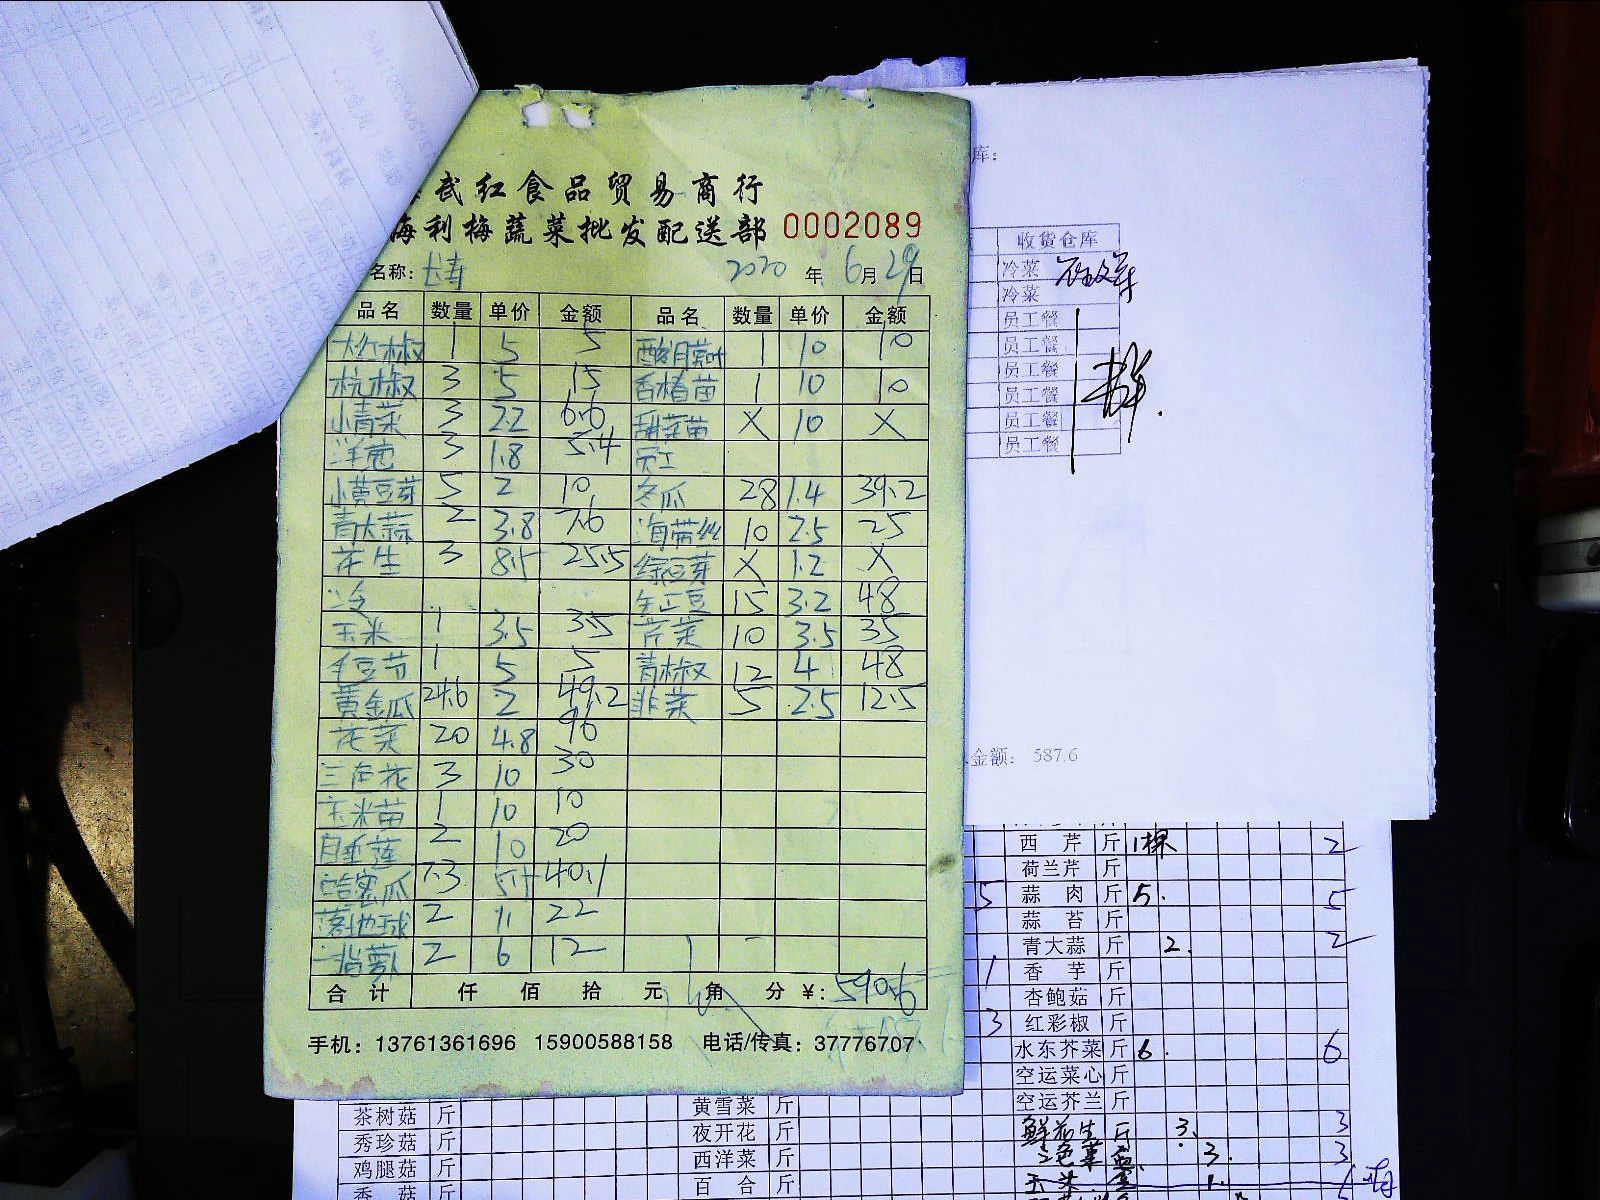 武红食品贸易商行
海利梅蔬菜批发配送部 0002089
名称: 2020 年 6 月 29 日
品名 数量 单价 金额 品名 数量 单价 金额
大红椒 1 5 5 1 10 10
杭椒 3 5 15 香椿苗 1 10 10
小青菜 3 2.2 6.6 甜菜苗 X 10 X
洋葱 3 1.8 5.4 员工
小黄豆芽 5 2 10 冬瓜 28 1.4 39.2
青大蒜 2 3.8 7.6 海带丝 10 2.5 25
花生 3 8.5 25.5 绿豆芽 X 1.2 X
冷 15 3.2 48
玉米 1 3.5 3.5 芹菜 10 3.5 35
毛豆节 1 5 5 青椒 12 4 48
黄金瓜 24.6 2 49.2 韭菜 5 2.5 12.5
花菜 20 4.8 96
三色花 3 10 30
玉米苗 1 10 10
2 10 20
哈密瓜 7.3 5.5 40.1
落地球 2 11 22
2 6 12
合计 仟 佰 拾 元 角 分 ¥: 590.6
手机: 13761361696 15900588158 电话/传真: 37776707
库:
收货仓库
冷菜
冷菜
员工餐
员工餐
员工餐
员工餐
员工餐
员工餐
金额: 587.6
西芹 斤 1棵 2
荷兰芹 斤
5 蒜肉 斤 5. 5
蒜苔 斤
青大蒜 斤 2. 2
1 香芋 斤
杏鲍菇 斤
3 红彩椒 斤
水东芥菜 斤 6. 6
空运菜心 斤
空运芥兰 斤
茶树菇 斤 黄雪菜 斤 鲜花生 斤 3. 3
秀珍菇 斤 夜开花 斤 3. 3
鸡腿菇 斤 西洋菜 斤 1.
香菇 斤 百合 斤